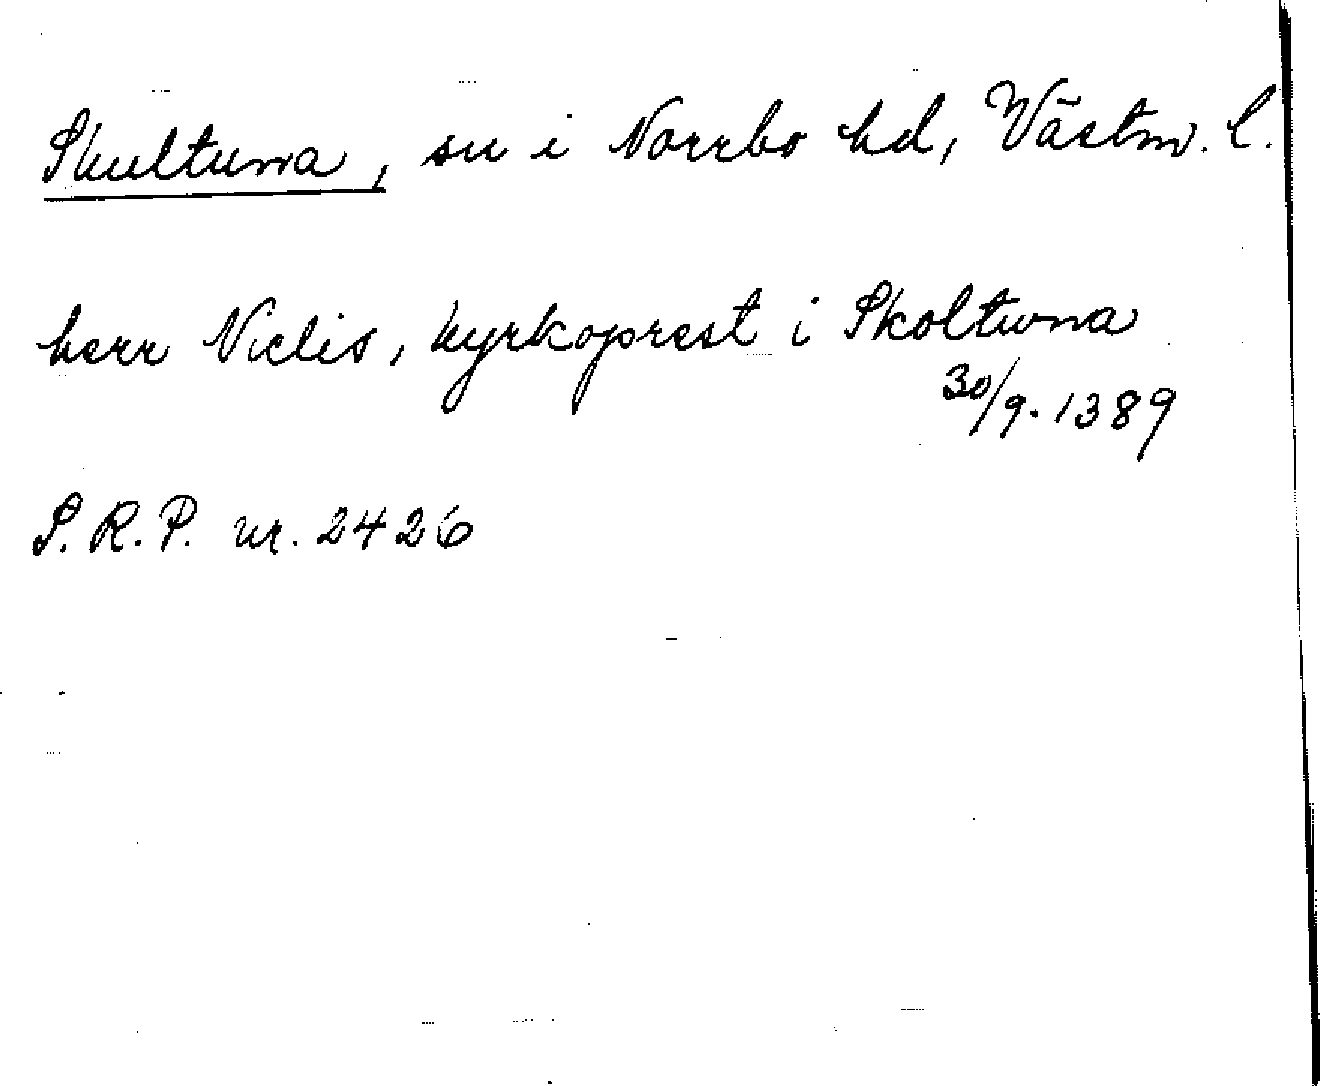 Skultuna, sn i Norrbo hd, Västm. l.
herr Niclis, kyrkoprest i Skoltuna
30/9. 1389
S.R.P. nr. 2426